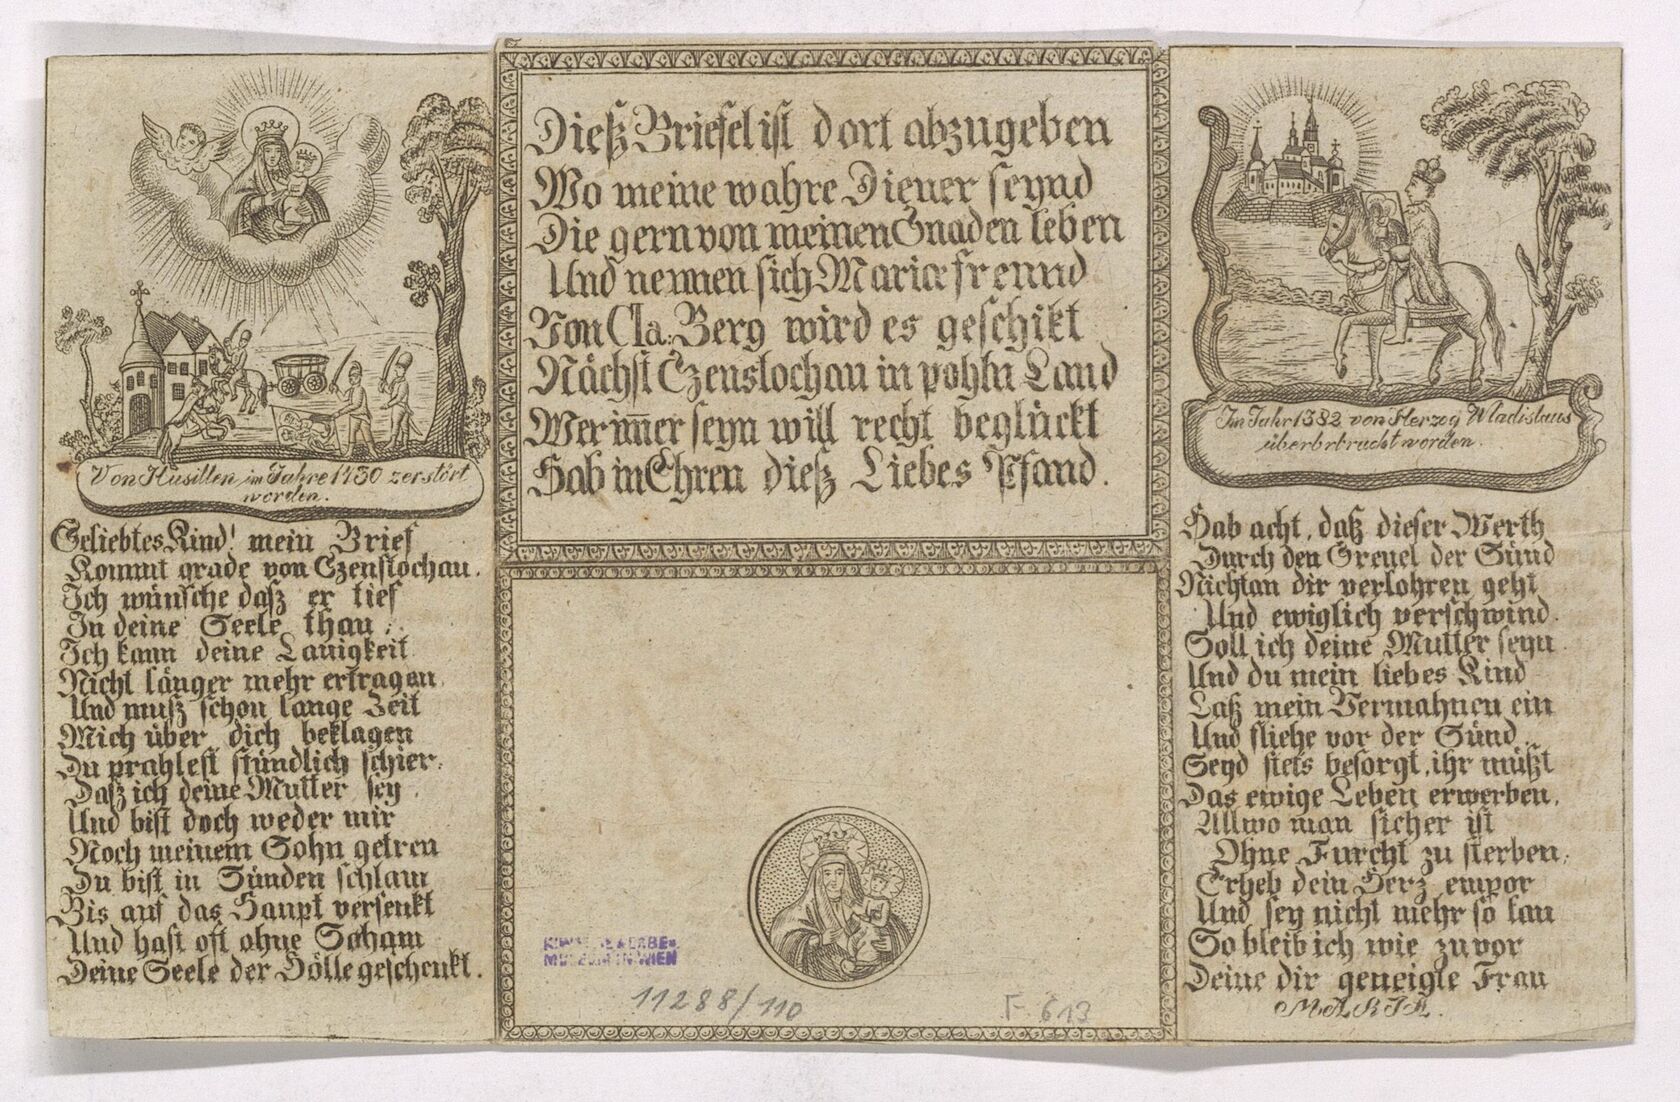 Von Husitten im Jahre 1430 zerstört
worden.
Geliebtes Kind! mein Brief
Kommt grade von Czenstochau.
Ich wünsche daß er tief
In deine Seele thau;
Ich kann deine Lauigkeit
Nicht länger mehr ertragen
Und muß schon lange Zeit
Mich über dich beklagen
Du prahlest stündlich schier.
Daß ich deine Mutter sey.
Und bist doch weder mir
Noch meinem Sohn getreu
Du bist in Sünden schlam
Bis auf das Haupt versenkt
Und hast oft ohne Scham
Deine Seele der Hölle geschenkt.
Dieß Briefel ist dort abzugeben
Wo meine wahre Diener seynd
Die gern von meinen Gnaden leben
Und nennen sich Mariæ freund
Von Cla: Berg wird es geschikt
Nächst Czenstochau in pohln Land
Wer im̄er seyn will recht beglückt
Hab in Ehren dieß Liebes Pfand.
KUNSTGEWERBE-
MUSEUM IN WIEN
11288/110
F. 613
Im Jahr 1382 von Herzog Wladislaus
überbrtracht worden.
Hab acht, daß dieser Werth
Durch den Greuel der Sünd
Nicht an dir verlohren geht
Und ewiglich verschwind.
Soll ich deine Mutter seyn.
Und du mein liebes Kind
Laß mein Vermahnen ein
Und fliehe vor der Sünd.
Seyd stets besorgt, ihr müßt
Das ewige Leben erwerben,
Allwo man sicher ist
Ohne Furcht zu sterben;
Erheb dein Herz empor
Und sey nicht mehr so lau
So bleib ich wie zuvor
Deine dir geneigte Frau
MARIA.